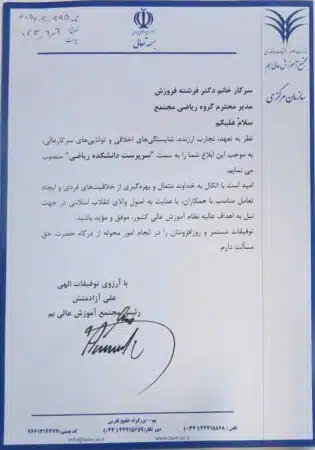 بسمه تعالی
شماره
تاریخ
پیوست
مجتمع آموزش عالی بم
سازمان مرکزی
سرکار خانم دکتر فرشته فروزش
مدیر محترم گروه ریاضی مجتمع
سلام علیکم
نظر به تعهد، تجارب ارزنده، شایستگی‌های اخلاقی و توانایی‌های سرکارعالی،
به موجب این ابلاغ شما را به سمت "سرپرست دانشکده ریاضی" منصوب
می نمایم.
امید است با اتکال به خداوند متعال و بهره‌گیری از خلاقیت‌های فردی و ایجاد
تعامل مناسب با همکاران، با عنایت به اصول والای انقلاب اسلامی در جهت
نیل به اهداف عالیه نظام آموزش عالی کشور، موفق و مؤید باشید.
توفیقات مستمر و روزافزونتان را در انجام امور محوله از درگاه حضرت حق
مسألت دارم.
با آرزوی توفیقات الهی
علی آزادمنش
رئیس مجتمع آموزش عالی بم
بم - بزرگراه خلیج فارس
info@bam.ac.ir
www.bam.ac.ir